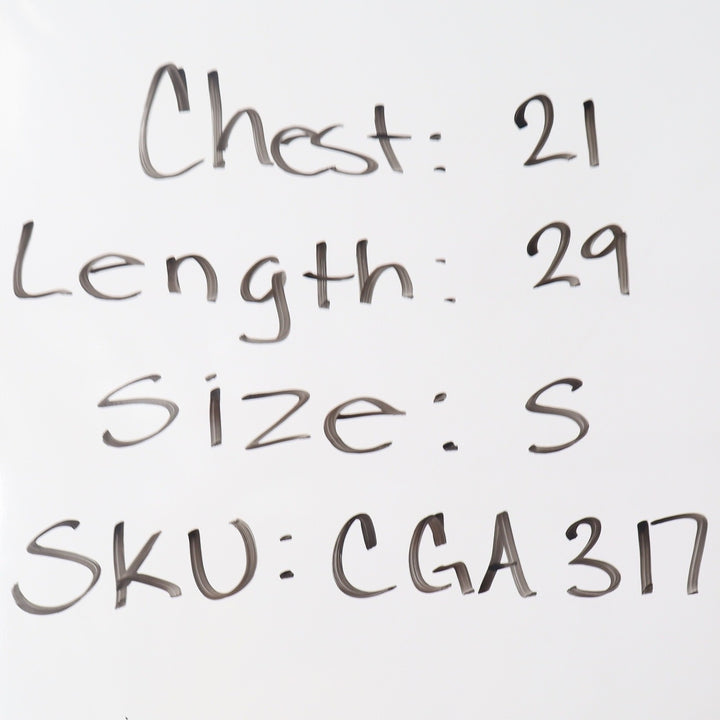 Chest: 21
Length: 29
Size: S
SKU: CGA 317